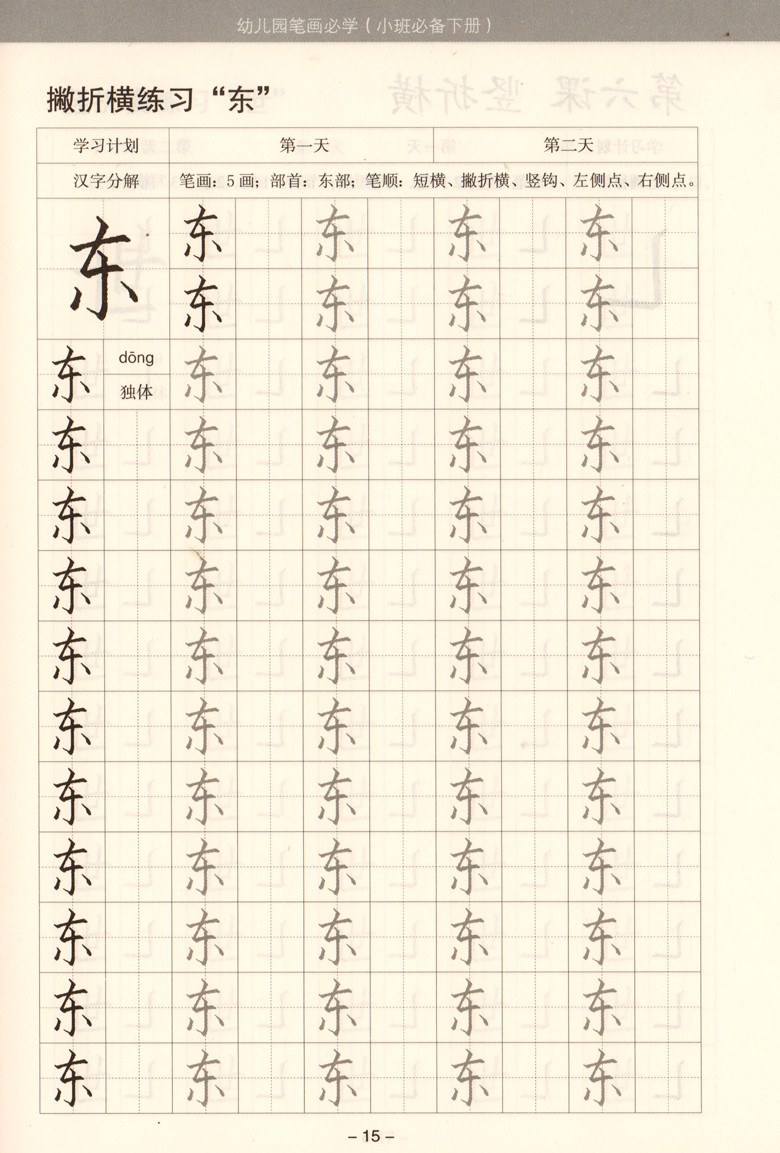 幼儿园笔画必学（小班必备下册）
撇折横练习“东”
学习计划 第一天 第二天
汉字分解 笔画：5画；部首：东部；笔顺：短横、撇折横、竖钩、左侧点、右侧点。
东 东 东 东 东
东 东 东 东
东 dōng 东 东 东 东
独体
东 东 东 东 东
东 东 东 东 东
东 东 东 东 东
东 东 东 东 东
东 东 东 东 东
东 东 东 东 东
东 东 东 东 东
东 东 东 东 东
东 东 东 东 东
东 东 东 东 东
– 15 –